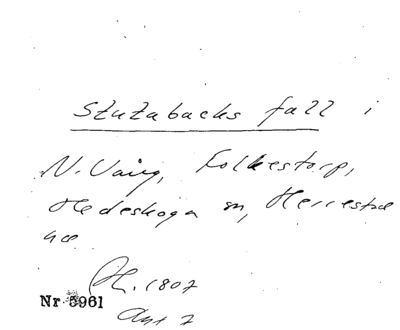 Stutabacks fall i
N. Vång, Folkestorp,
Hedeskoga sn, Herrestads
hd
1807
Nr 5961